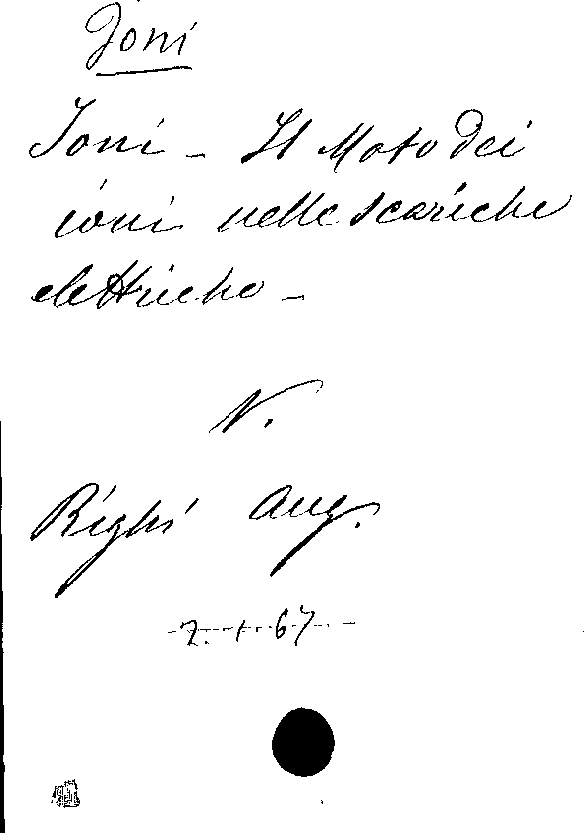 Joni
Joni - Il Moto dei
ioni nelle scariche
elettriche -
V.
Righi Aug.
7. 1. 67